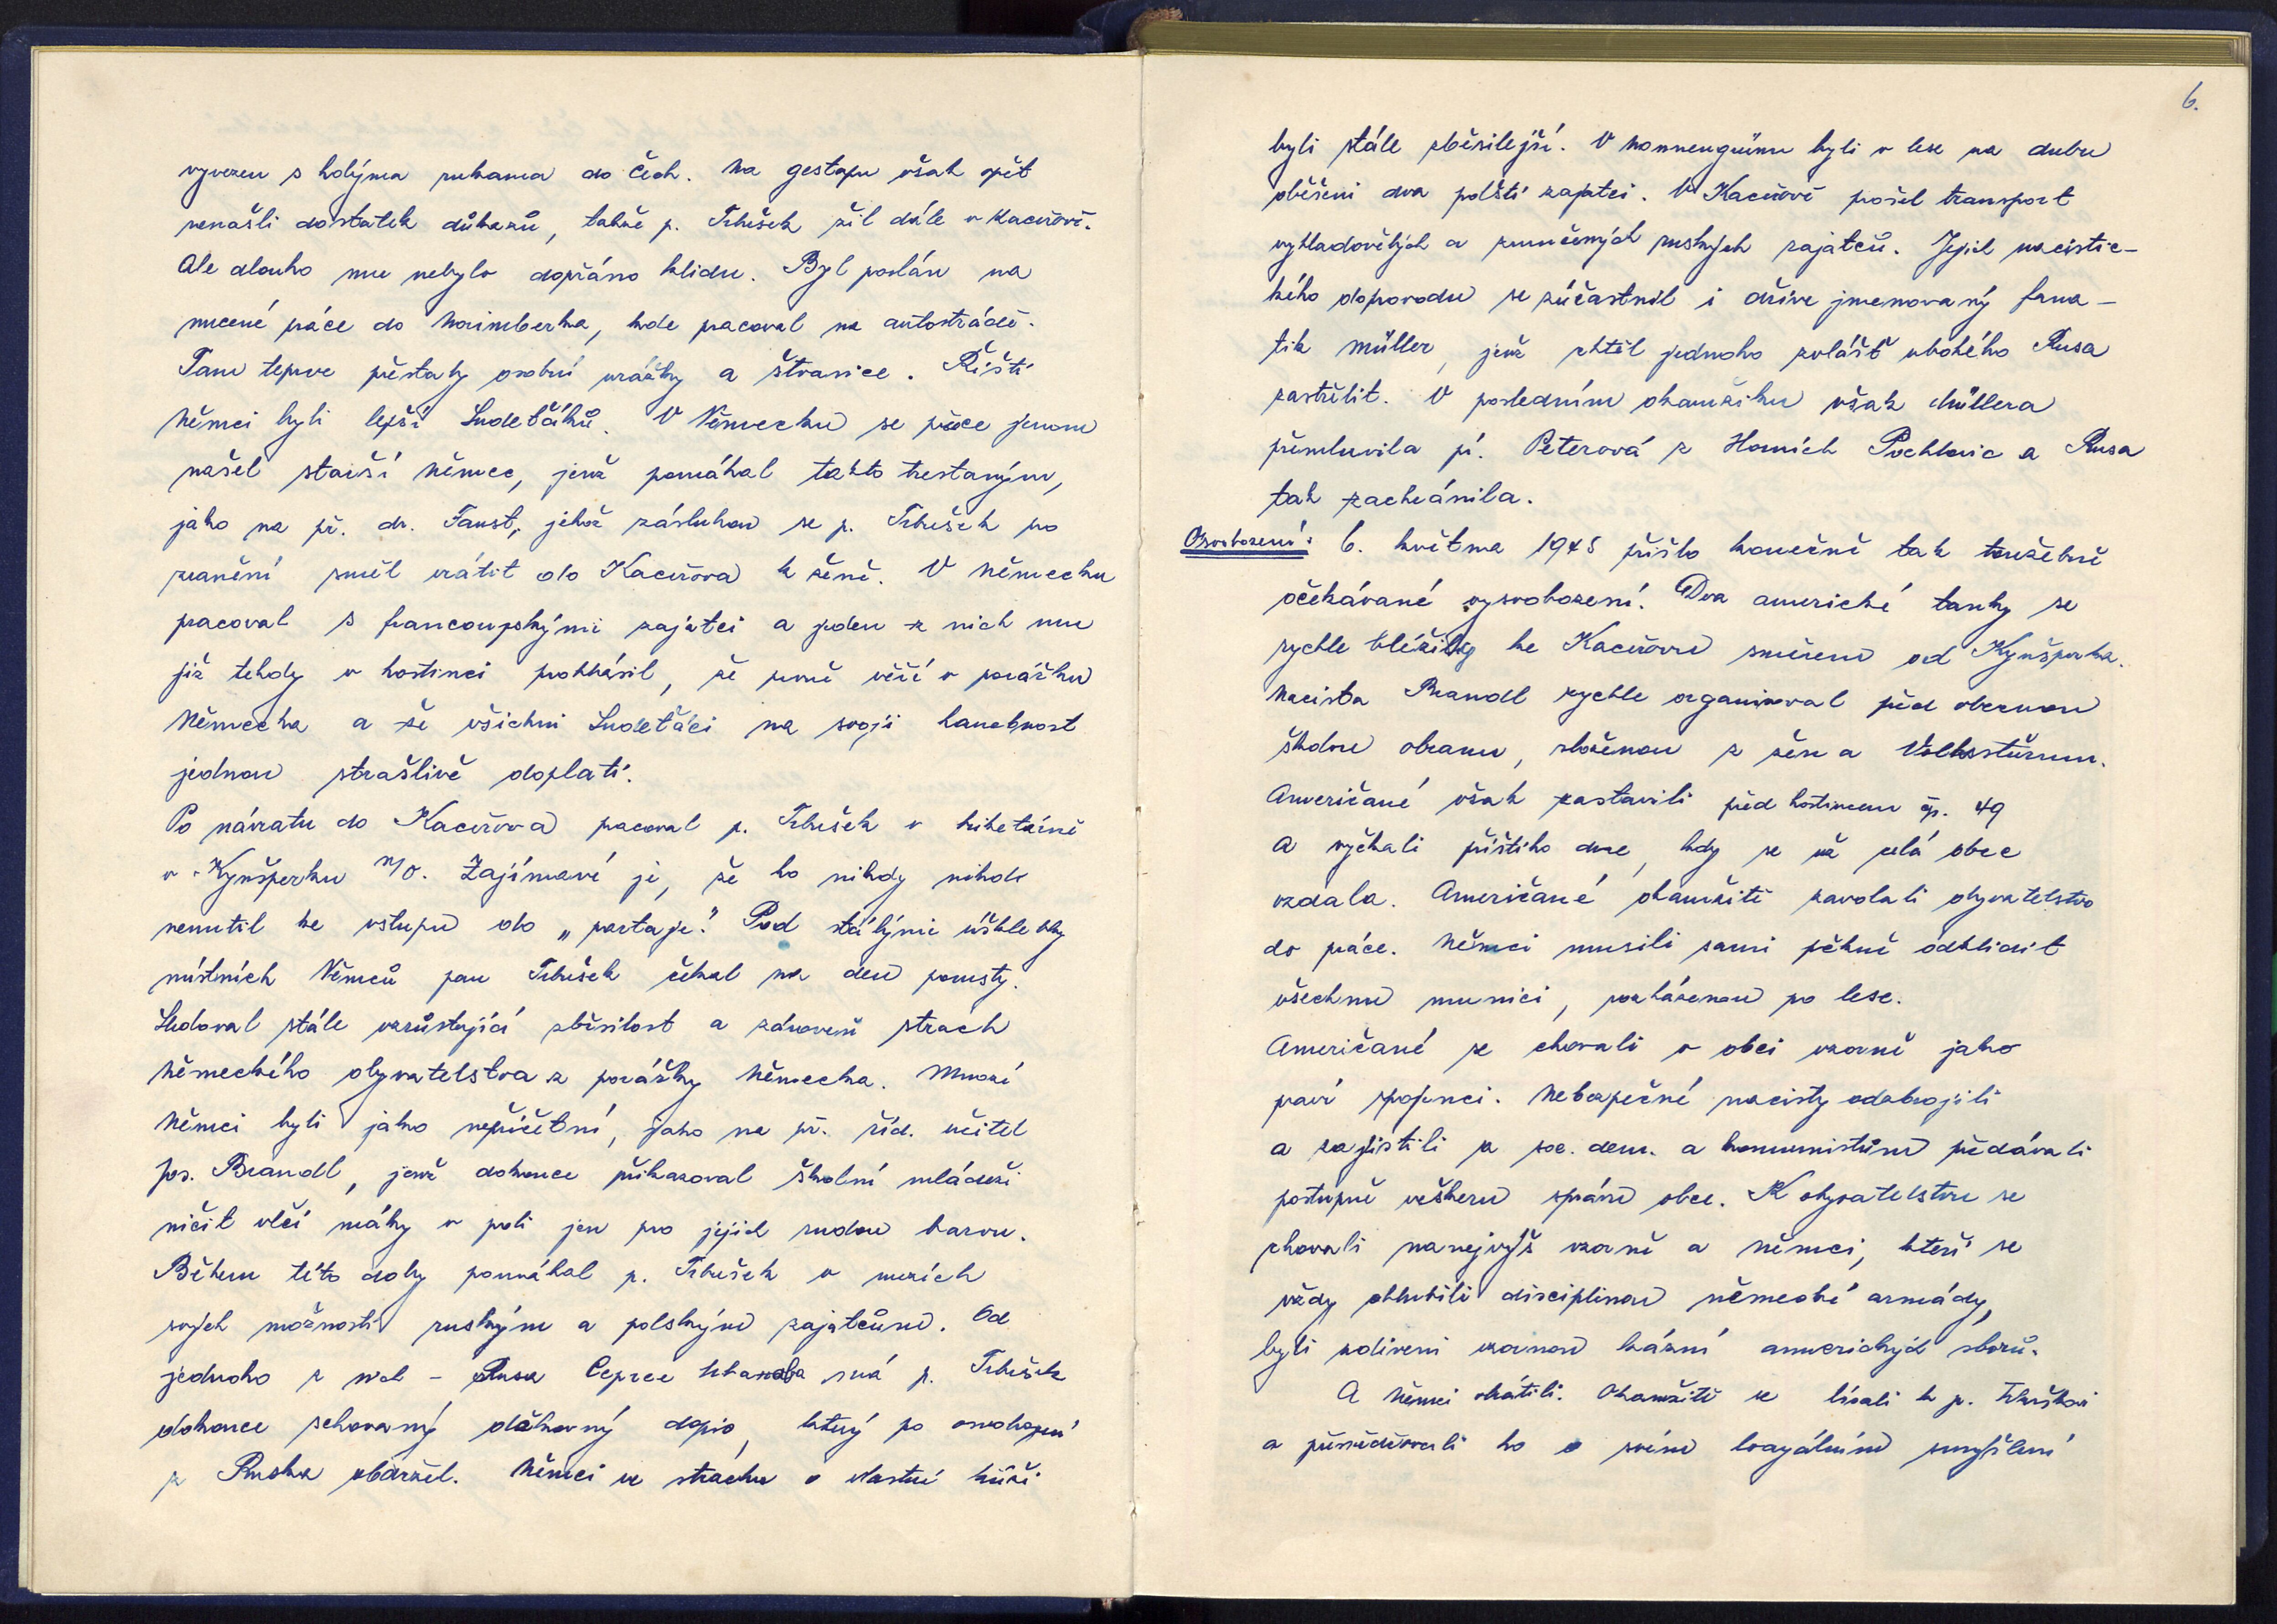 vyvezen s holýma rukama do Čech. Na gestapu však opět
nenašli dostatek důkazů, takže p. Trhušek žil dále v Kaceřově.
Ale dlouho mu nebylo dopřáno klidu. Byl poslán na
nucené práce do Norimberka, kde pracoval na autostrádě.
Tam teprve přestaly osobní urážky a štvanice. Říští
Němci byli lepší Sudeťáků. V Německu se přece jenom
našel starší Němec, jenž pomáhal takto trestaným,
jako na př. dr. Faust, jehož zásluhou se p. Trhušek po
zranění směl vrátit do Kaceřova k ženě. V Německu
pracoval s francouzskými zajatci a jeden z nich mu
již tehdy v hostinci prohlásil, že pevně věří v porážku
Německa a že všichni Sudeťáci na svoji hanebnost
jednou strašlivě doplatí.
Po návratu do Kaceřova pracoval p. Trhušek v briketárně
v Kynšperku n/O. Zajímavé je, že ho nikdy nikdo
nenutil ke vstupu do „partaje". Pod stálými úšklebky
místních Němců pan Trhušek čekal na den pomsty.
Sledoval stále vzrůstající zběsilost a zároveň strach
německého obyvatelstva z porážky Německa. Mnozí
Němci byli jako nepříčetní, jako na př. říd. učitel
Jos. Brandl, jenž dokonce přikazoval školní mládeži
ničit vlčí máky v poli jen pro jejich rudou barvu.
Během této doby pomáhal p. Trhušek v mezích
svých možností ruským a polským zajatcům. Od
jednoho z nich – Rusa má p. Trhušek
dokonce schovaný děkovný dopis, který po osvobození
z Ruska obdržel. Němci ve strachu o vlastní kůži
6.
byli stále zběsilejší. V Nonnengrünu byli v lese na dubu
oběšeni dva polští zajatci. V Kaceřově prošel transport
vyhladovělých a zmučených ruských zajatců. Jejich nacistic-
kého doprovodu se zúčastnil i dříve jmenovaný fana-
tik Müller, jenž chtěl jednoho zvlášť ubohého Rusa
zastřelit. V posledním okamžiku však Müllera
přemluvila pí. Peterová z Horních Pochlovic a Rusa
tak zachránila.
Osvobození: 6. května 1945 přišlo konečně tak toužebně
očekávané vysvobození. Dva americké tanky se
rychle blížily ke Kaceřovu směrem od Kynšperka.
Nacista Brandl rychle organisoval před obecnou
školou obranu, složenou z žen a Volkssturmu.
Američané však zastavili před hostincem čp. 49
a vyčkali příštího dne, kdy se už celá obec
vzdala. Američané okamžitě zavolali obyvatelstvo
do práce. Němci musili sami pěkně odklidit
všechnu munici, rozházenou po lese.
Američané se chovali v obci vzorně jako
praví spojenci. Nebezpečné nacisty odzbrojili
a zajistili a soc. dem. a komunistům předávali
postupně veškeru správu obce. K obyvatelstvu se
chovali nanejvýš vzorně a Němci, kteří se
vždy chlubili disciplinou německé armády,
byli udiveni vzornou kázní amerických sborů.
A Němci obrátili. Okamžitě se lísali k p. Trhuškovi
a přesvědčovali ho o svém loayálním smýšlení